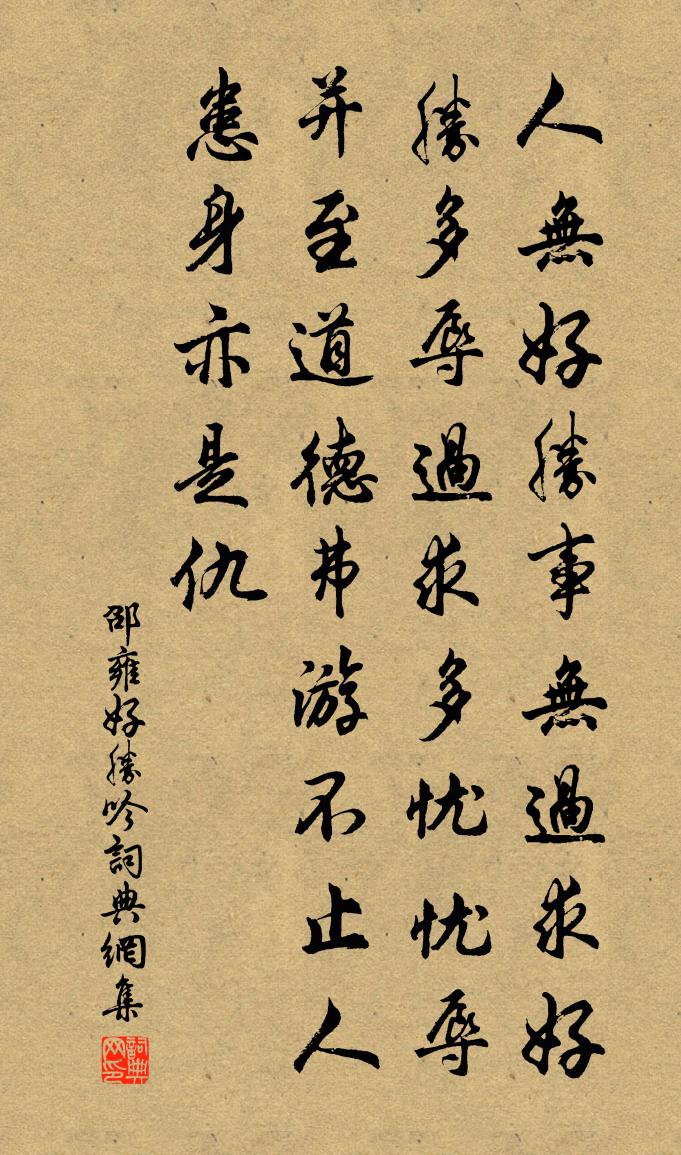 人無好勝事無過求好
勝多辱過求多忧忧辱
并至道德弗游不止人
患身亦是仇
邵雍好勝吟詞典網集
詞典网印